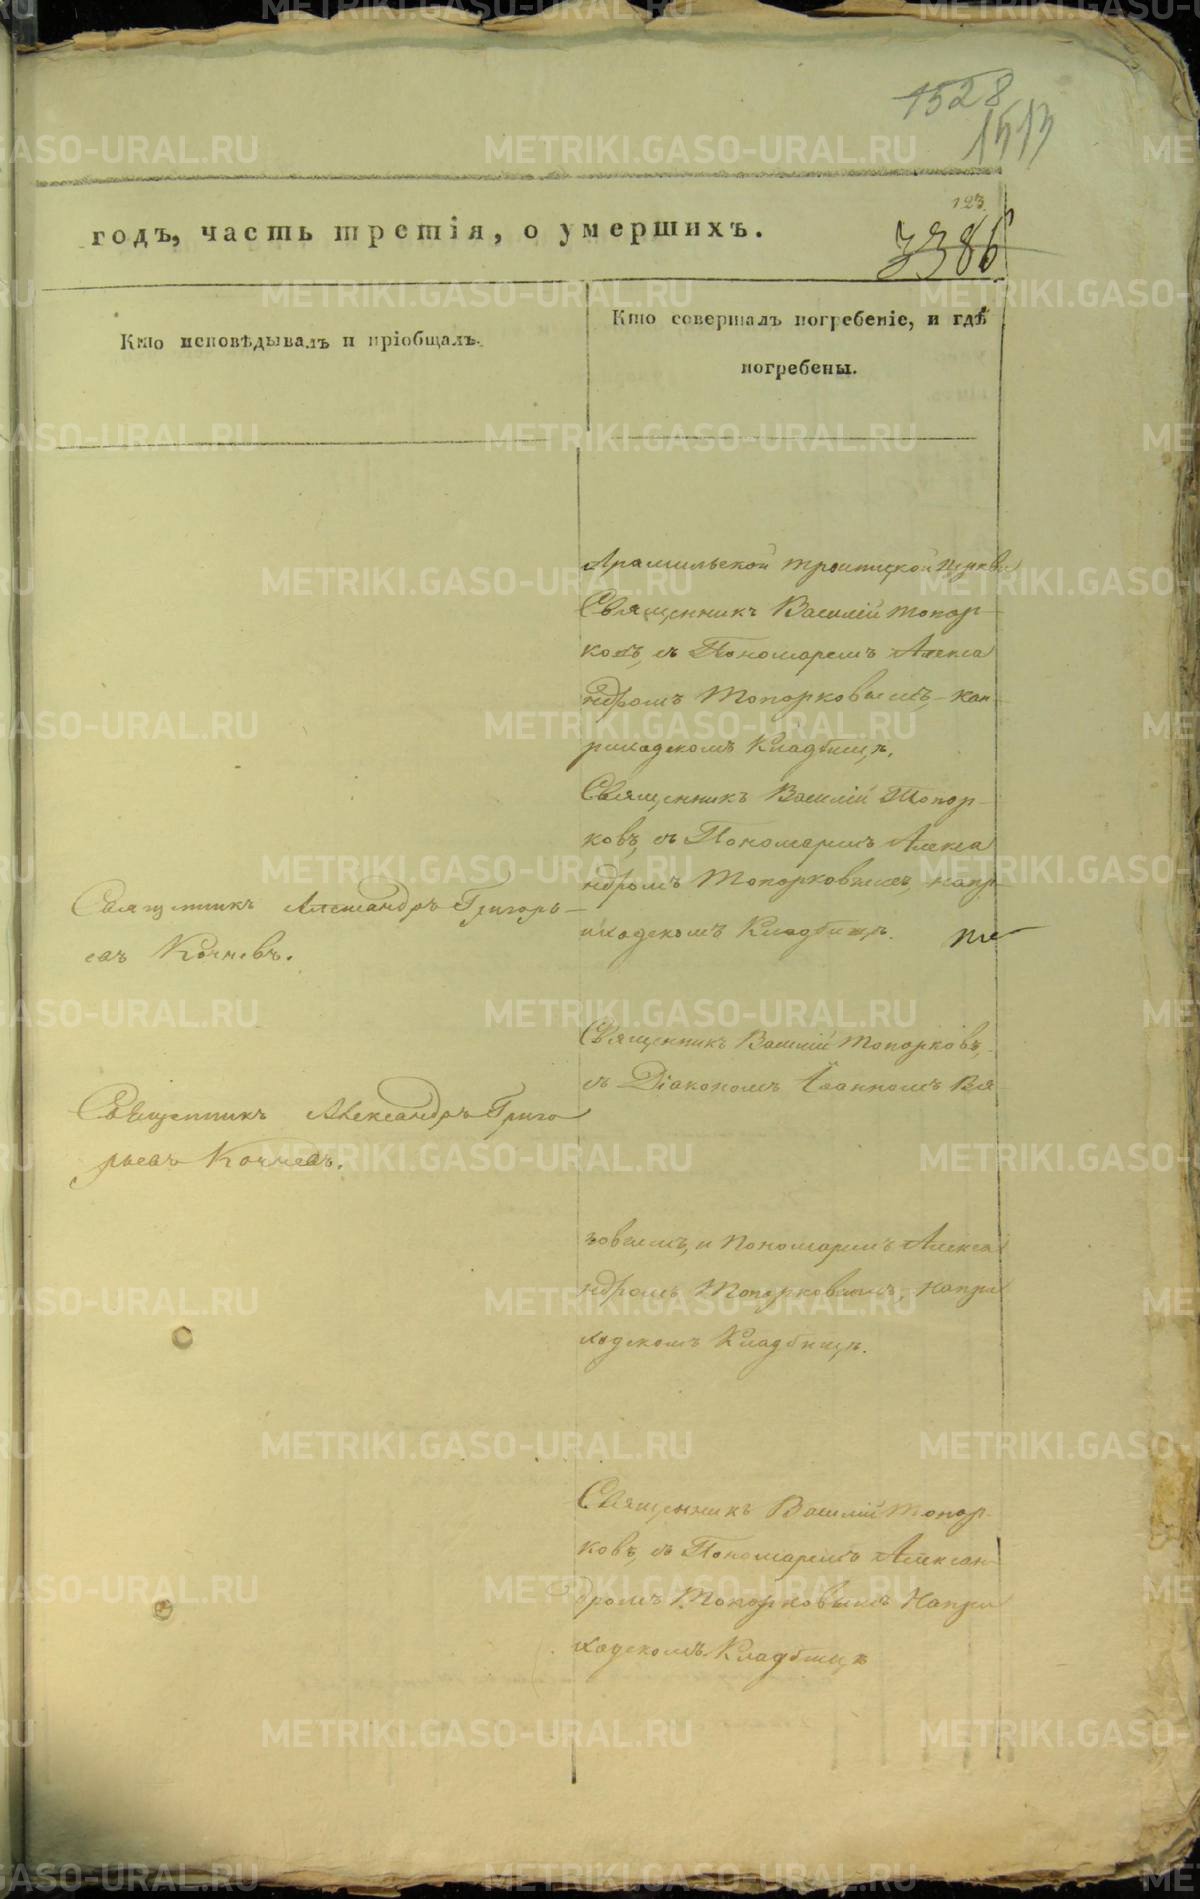 1528
1513
123
годъ, часть третія, о умершихъ.
3386
Кто исповѣдывалъ и пріобщалъ.
Кто совершалъ погребеніе, и гдѣ
погребены.
Арамильской Троитской церкви
Священникъ Василій Топор-
ковъ, съ Пономаремъ Алекса
ндромъ Топорковымъ, на п
риходскомъ Кладбищѣ.
Священникъ Василій Топор-
ковъ, съ Пономаремъ Алекса
ндромъ Топорковымъ, на пр
иходскомъ Кладбищѣ.
Священникъ Александръ Григорь-
евъ Кочневъ.
Священникъ Василій Топорковъ,
съ Діакономъ Іоанномъ Вя-
Священникъ Александръ Григо
рьевъ Кочневъ.
зовымъ, и Пономаремъ Алекса
ндромъ Топорковымъ, на при
ходскомъ Кладбищѣ.
Священникъ Василій Топор-
ковъ, съ Пономаремъ Алексан-
дромъ Топорковымъ На при
ходскомъ Кладбищѣ
METRIKI.GASO-URAL.RU